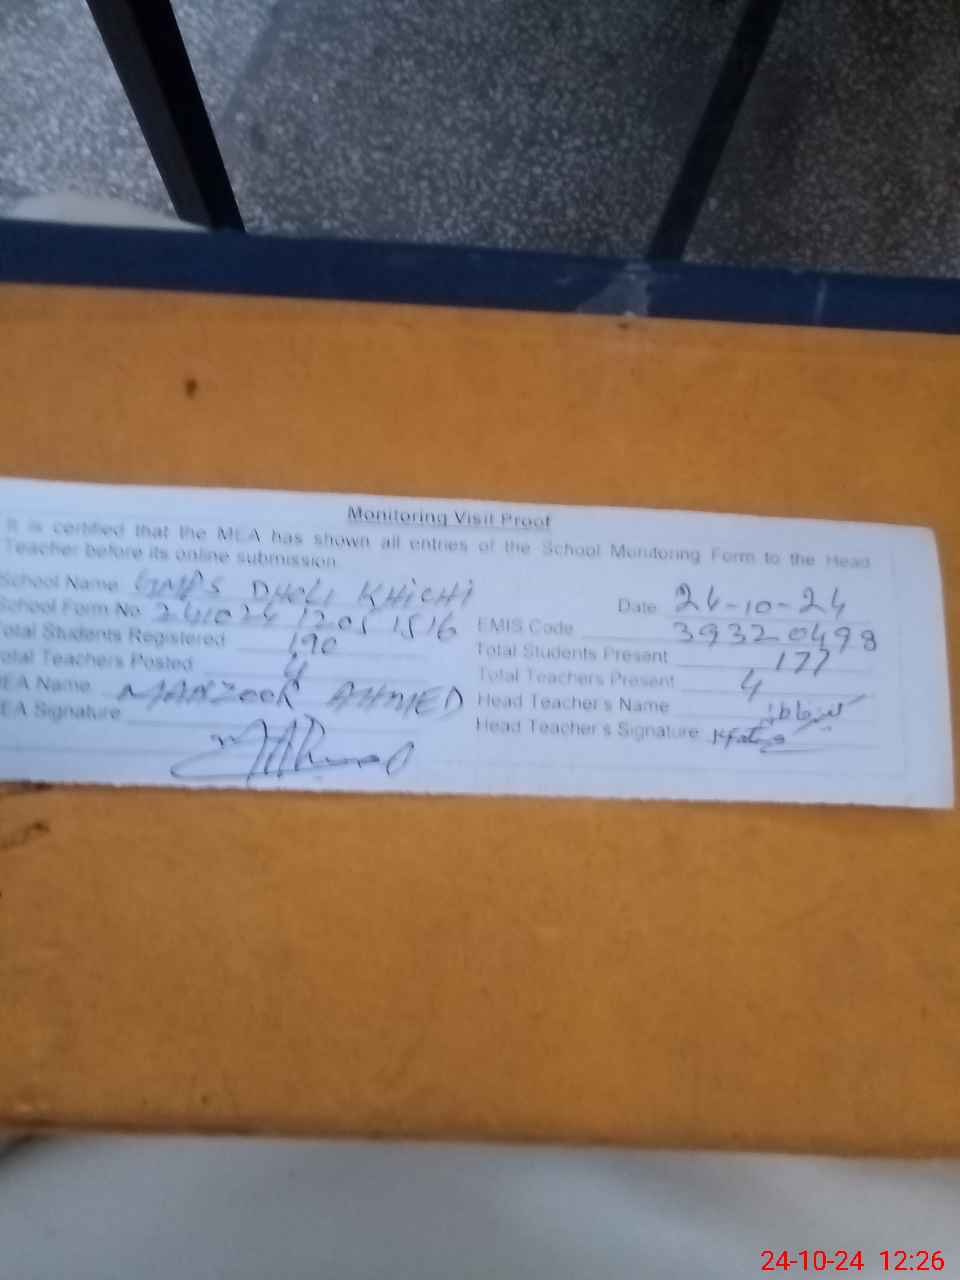 Monitoring Visit Proof
It is certified that the MEA has shown all entries of the School Monitoring Form to the Head
Teacher before its online submission.
School Name GMPS DHOLI KHICHI
Date 24-10-24
School Form No 241024 12051516
EMIS Code 39320498
Total Students Registered 190
Total Students Present 177
Total Teachers Posted 4
Total Teachers Present 4
MEA Name MANZOOR AHMED
Head Teacher's Name
MEA Signature
Head Teacher's Signature
24-10-24 12:26